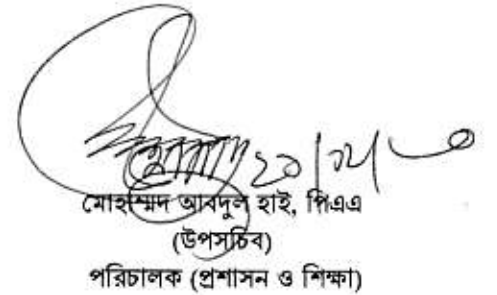 মোহাম্মদ আবদুল হাই, পিএএ
(উপসচিব)
পরিচালক (প্রশাসন ও শিক্ষা)